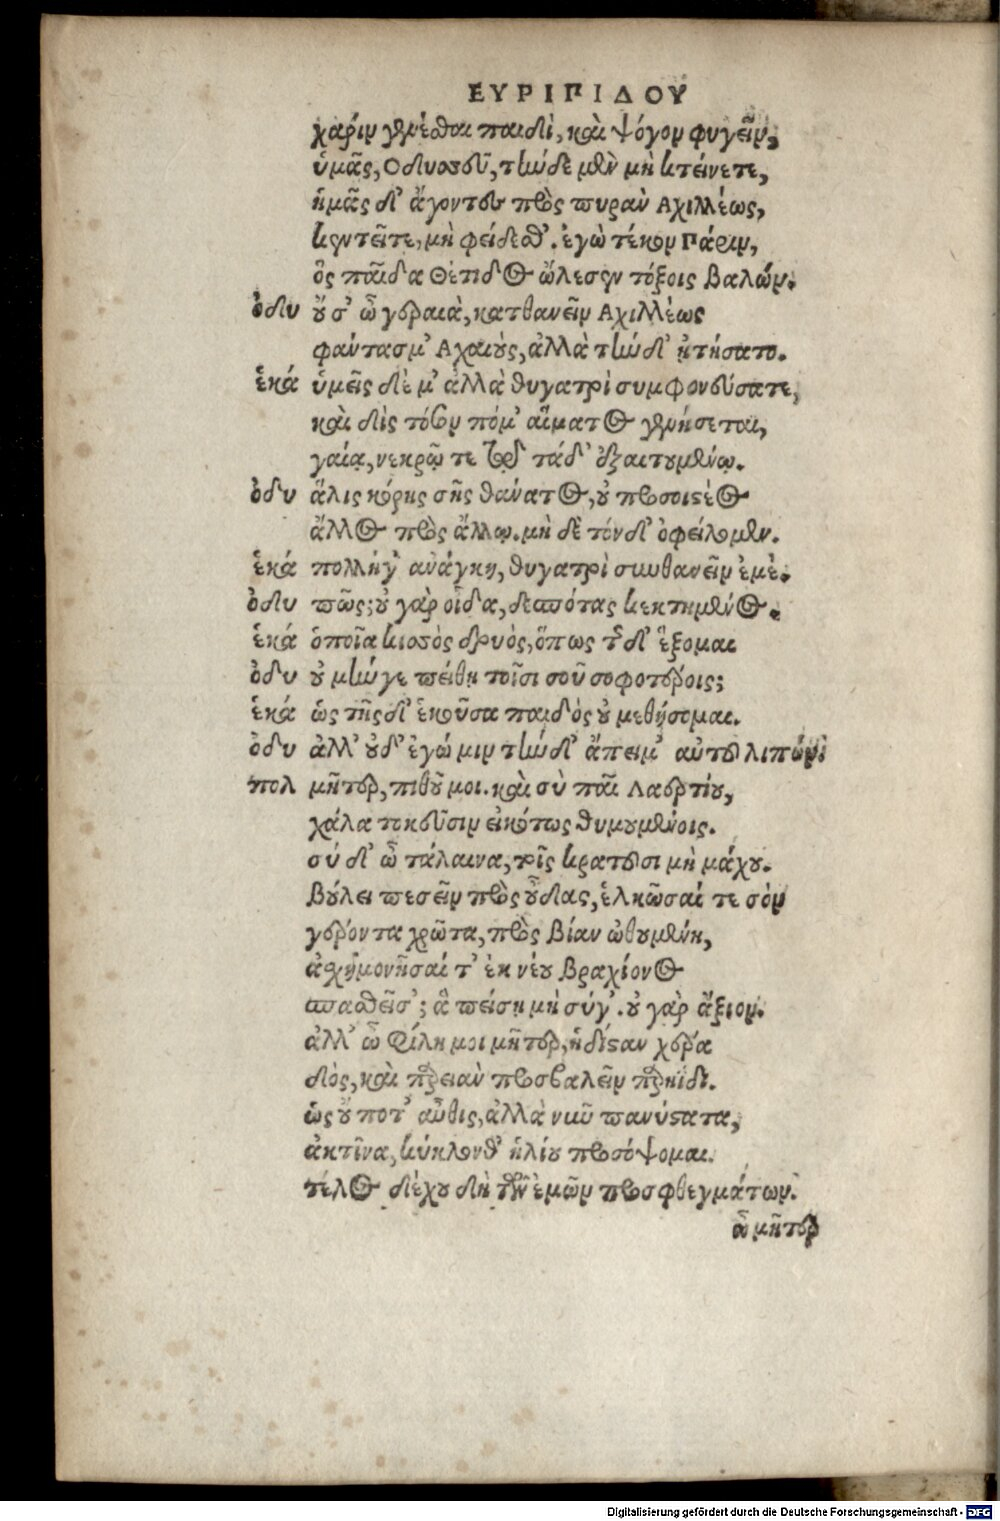 ΕΥΡΙΠΙΔΟΥ
χάριν γενέσθαι παιδὶ, καὶ ψόγον φυγεῖν,
ὑμᾶς, Οδυσσεῦ, τήνδε μὲν μὴ κτείνετε,
ἡμᾶς δ' ἄγοντες πρὸς πυρὰν Αχιλλέως,
κεντεῖτε, μὴ φείδεσθ'. ἐγὼ τέκον Πάριν,
ὃς παῖδα Θέτιδος ὤλεσεν τόξοις βαλών.
ὀδυ οὔ σ' ὦ γεραιὰ, κατθανεῖν Αχιλλέως
φάντασμ' Αχαιοὺς, ἀλλὰ τήνδ' ᾐτήσατο.
ἑκά ὑμεῖς δὲ μ' ἀλλὰ θυγατρὶ συμφονεύσατε,
καὶ δὶς τόσον πόμ' αἵματος γενήσεται,
γαίᾳ, νεκρῷ τε τῷ τάδ' ἐξαιτουμένῳ.
ὀδυ ἅλις κόρης σῆς θάνατος, οὐ προσοιστέος
ἄλλος πρὸς ἄλλῳ. μὴ δὲ τόνδ' ὀφείλομεν.
ἑκά πολλήγ' ἀνάγκη, θυγατρὶ συνθανεῖν ἐμέ.
ὀδυ πῶς; οὐ γὰρ οἶδα, δεσπότας κεκτημένος.
ἑκά ὁποῖα κισσὸς δρυὸς, ὅπως τῆσδ' ἕξομαι
ὀδυ οὐ μήνγε πείθῃ τοῖσι σοῦ σοφοτέροις;
ἑκά ὡς τῆςδ' ἑκοῦσα παιδὸς οὐ μεθήσομαι.
ὀδυ ἀλλ' οὐδ' ἐγώ μιν τήνδ' ἄπειμ' αὐτοῦ λιπών.
πολ μῆτερ, πιθοῦ μοι. καὶ σὺ παῖ Λαερτίου,
χάλα τοκεῦσιν εἰκότως θυμουμένοις.
σύ δ' ὦ τάλαινα, τοῖς κρατοῦσι μὴ μάχου.
βούλει πεσεῖν πρὸς οὖδας, ἑλκῶσαί τε σὸν
γέροντα χρῶτα, πρὸς βίαν ὠθουμένη,
ἀσχημονῆσαί τ' ἐκ νέου βραχίονος
σπασθεῖσ'; ἃ πείσῃ μὴ σύγ'. οὐ γὰρ ἄξιον.
ἀλλ' ὦ φίλη μοι μῆτερ, ἡδίσταν χέρα
δὸς, καὶ παρειὰν προσβαλεῖν παρηΐδι.
ὡς οὔ ποτ' αὖθις, ἀλλὰ νῦν πανύστατα,
ἀκτῖνα, κύκλονθ' ἡλίου προσόψομαι.
τέλος δέχου δὴ τῶν ἐμῶν προσφθεγμάτων.
ὦ μῆτερ
Digitalisierung gefördert durch die Deutsche Forschungsgemeinschaft - DFG